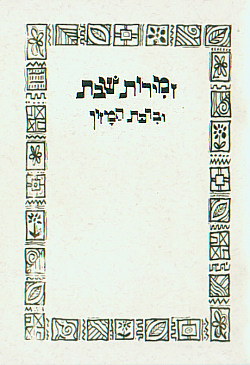 זמירות שבת
וברכת המזון